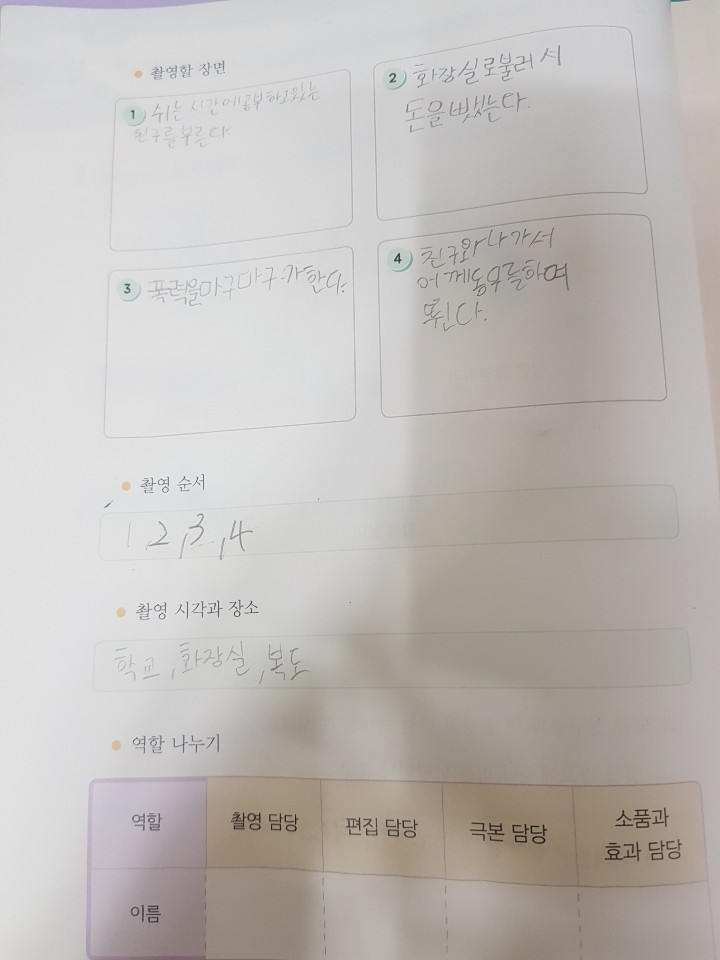 촬영할 장면
1 쉬는 시간에 공부하고있는
친구를 부른다.
2 화장실로불러서
돈을 뺏는다.
3 폭력을마구마구 가한다.
4 친구와 나가서
어깨동무를하며
뛴다.
촬영 순서
1, 2, 3, 4
촬영 시각과 장소
학교, 화장실, 복도
역할 나누기
역할 촬영 담당 편집 담당 극본 담당 소품과
효과 담당
이름